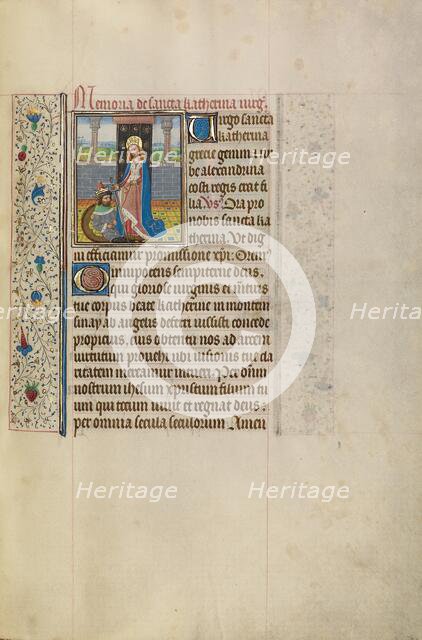 Memoria de sancta katherina virg̃.
Virgo sancta
katherina
grecie gemma ur
be alexandrina
costi regis erat fi
lia Vs̃ Ora pro
nobis sancta ka
therina. Ut dig
ni efficiamur promissione xp̃i. Orem̃
Omnipotens sempiterne deus.
qui gloriose virginis et martiris
tue corpus beate katherine in montem
sinay ab angelis deferri iussisti concede
propicius, eius obtentu nos ad arcem
virtutum provehi ubi visionis tue cla
ritatem mereamur intueri. Per dñm
nostrum ihesum xp̃m filium tu
um qui tecum vivit et regnat deus.
per omnia secula seculorum Amen
Heritage Heritage Heritage
Heritage Heritage
Heritage Heritage Heritage
Heritage Heritage